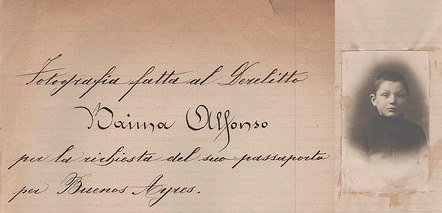 Fotografia fatta al Derelitto
Naima Alfonso
per la richiesta del suo passaporto
per Buenos Ayres.